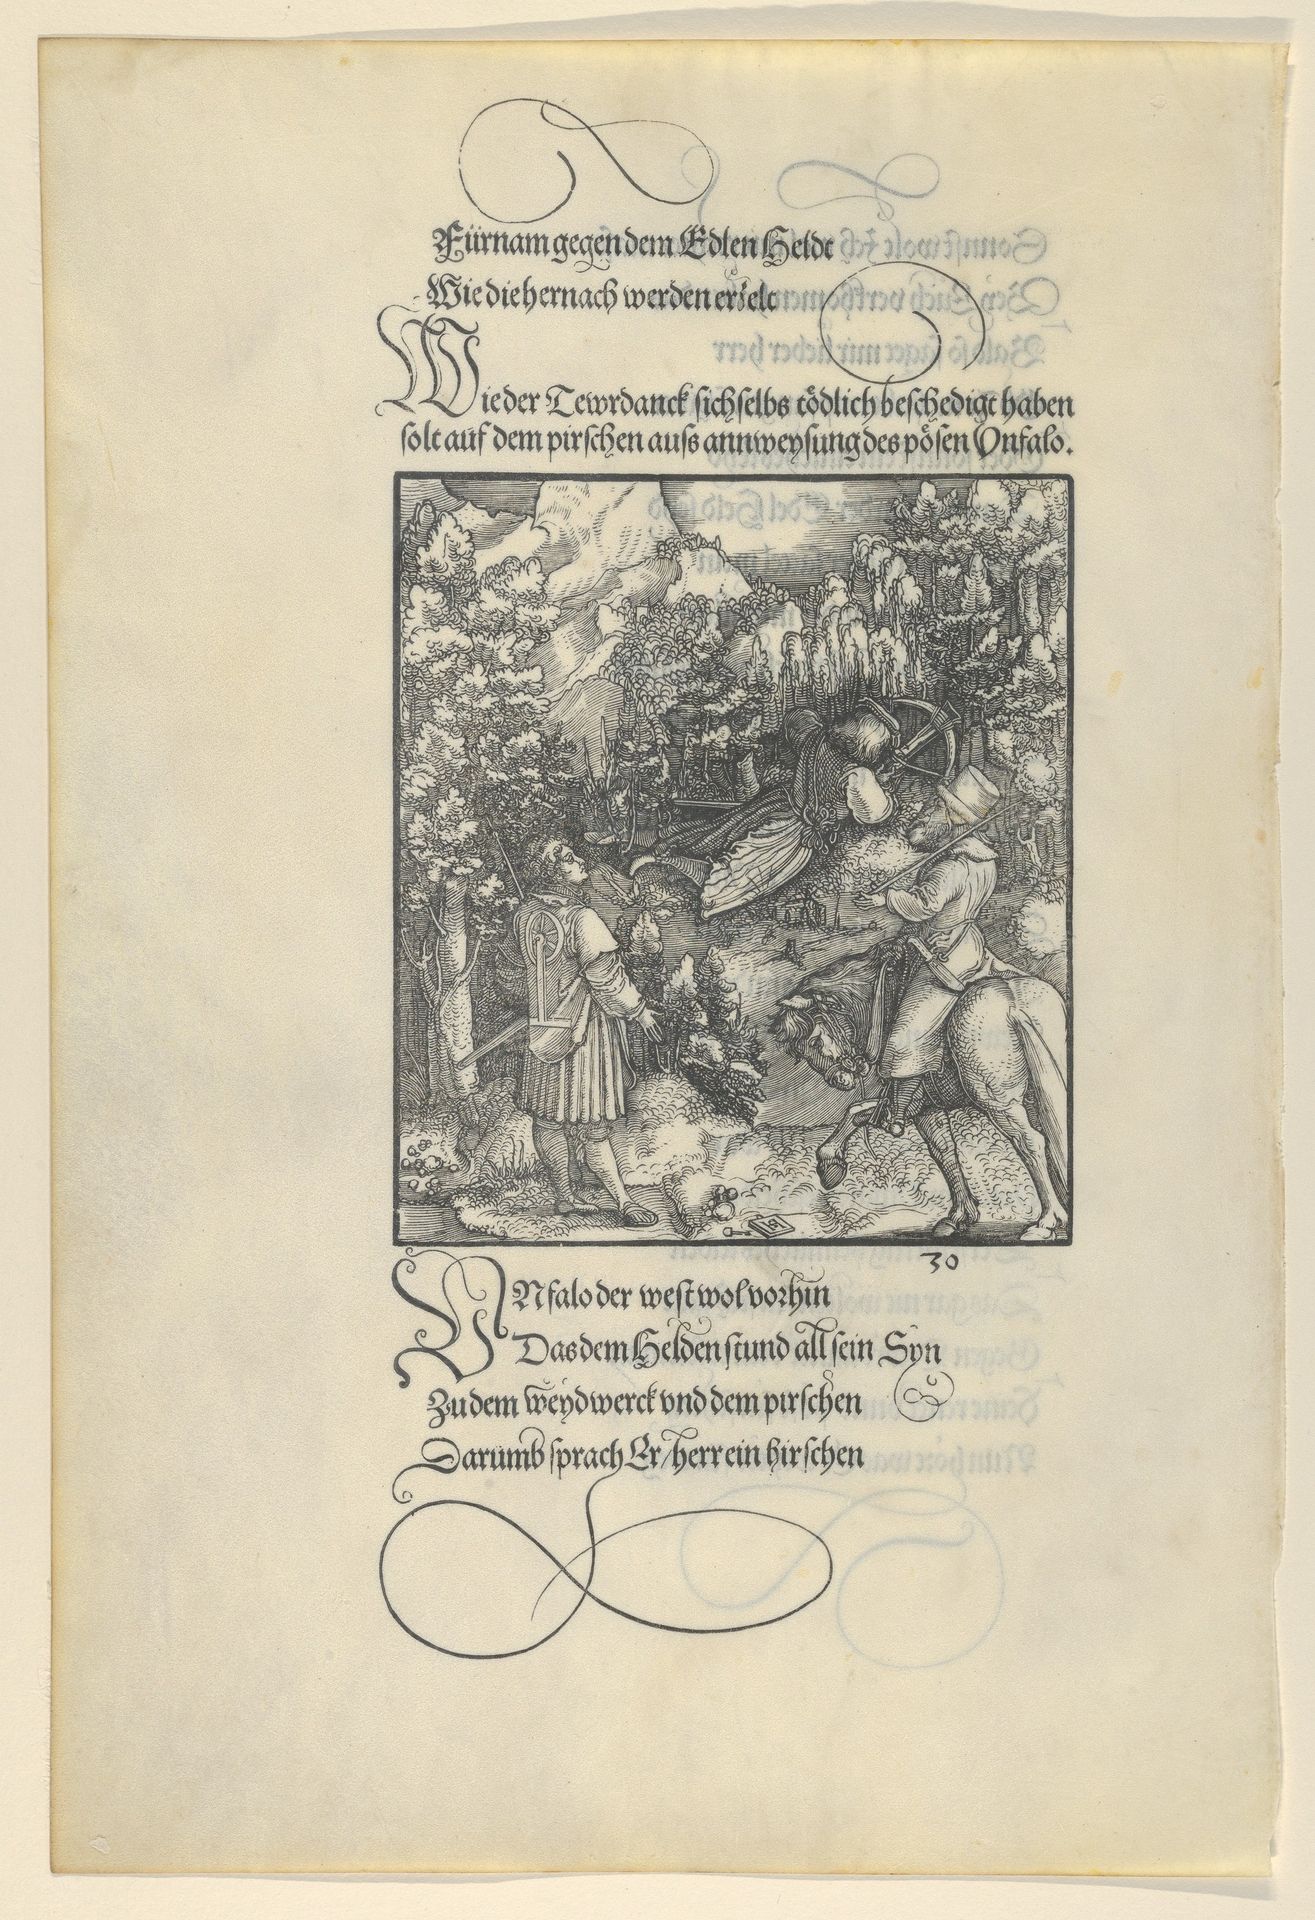 Fürnam gegen dem Edlen Heldt
Wie die hernach werden erzelt
Wie der Tewrdanck sich selbs tödlich beschedigt haben
solt auf dem pirschen auss annweysung des pösen Vnfalo.
30
VNfalo der west wol vorhin
Das dem Helden stund all sein Syn
Zu dem weydwerck vnd dem pirschen
Darumb sprach Er/herr ein hirschen